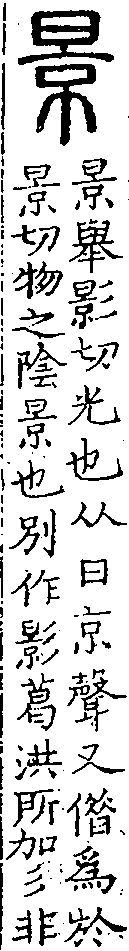 景
景舉影切光也从日京聲又僭爲於
景切物之陰景也別作影葛洪所加彡非